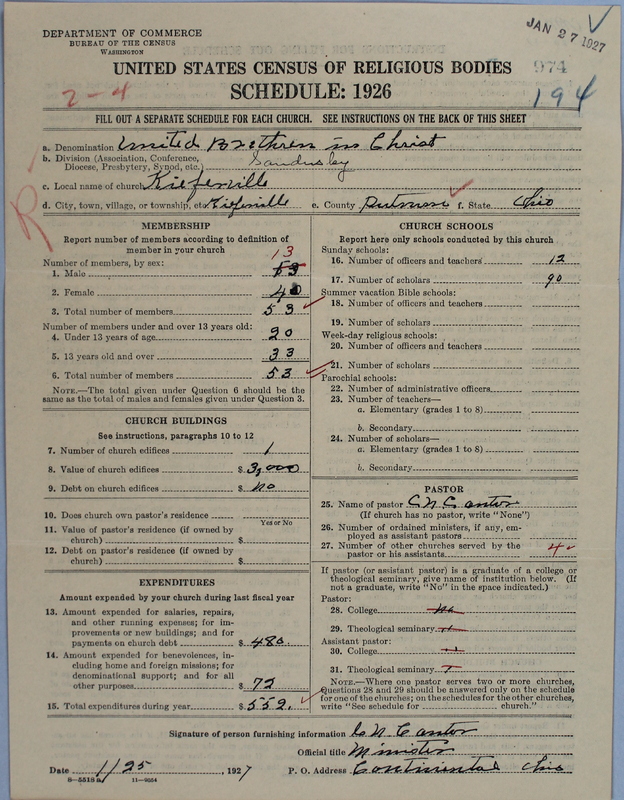 DEPARTMENT OF COMMERCE
BUREAU OF THE CENSUS
WASHINGTON
JAN 27 1927
UNITED STATES CENSUS OF RELIGIOUS BODIES
974
SCHEDULE: 1926
2-4
194
FILL OUT A SEPARATE SCHEDULE FOR EACH CHURCH. SEE INSTRUCTIONS ON THE BACK OF THIS SHEET
a. Denomination United Brethren in Christ
b. Division (Association, Conference, Diocese, Presbytery, Synod, etc.) Sandusky
c. Local name of church Kieferville
d. City, town, village, or township, etc. Kieferville e. County Putnam f. State Ohio
R
MEMBERSHIP
Report number of members according to definition of
member in your church
Number of members, by sex: 13
1. Male 53
2. Female 40
3. Total number of members 53
Number of members under and over 13 years old:
4. Under 13 years of age 20
5. 13 years old and over 33
6. Total number of members 53
NOTE.—The total given under Question 6 should be
same as the total of males and females given under Question 3.
CHURCH BUILDINGS
See instructions, paragraphs 10 to 12
7. Number of church edifices 1
8. Value of church edifices $ 3,000
9. Debt on church edifices $ no
10. Does church own pastor's residence
Yes or No
11. Value of pastor's residence (if owned by
church) $
12. Debt on pastor's residence (if owned by
church) $
EXPENDITURES
Amount expended by your church during last fiscal year
13. Amount expended for salaries, repairs,
and other running expenses; for im-
provements or new buildings; and for
payments on church debt $ 480.
14. Amount expended for benevolences, in-
cluding home and foreign missions; for
denominational support; and for all
other purposes $ 72
15. Total expenditures during year $ 552.
CHURCH SCHOOLS
Report here only schools conducted by this church
Sunday schools:
16. Number of officers and teachers 12
17. Number of scholars 90
Summer vacation Bible schools:
18. Number of officers and teachers
19. Number of scholars
Week-day religious schools:
20. Number of officers and teachers
21. Number of scholars
Parochial schools:
22. Number of administrative officers
23. Number of teachers—
a. Elementary (grades 1 to 8)
b. Secondary
24. Number of scholars—
a. Elementary (grades 1 to 8)
b. Secondary
PASTOR
25. Name of pastor C. N. Cantor
(If church has no pastor, write "None")
26. Number of ordained ministers, if any, em-
ployed as assistant pastors
27. Number of other churches served by the
pastor or his assistants 4
If pastor (or assistant pastor) is a graduate of a college or
theological seminary, give name of institution below. (If
not a graduate, write "No" in the space indicated.)
Pastor:
28. College No
29. Theological seminary "
Assistant pastor:
30. College "
31. Theological seminary
NOTE.—Where one pastor serves two or more churches,
Questions 28 and 29 should be answered only on the schedule
for one of the churches; on the schedules for the other churches,
write "See schedule for church."
Signature of person furnishing information C. N. Cantor
Official title Minister
Date 1/25, 1927 P. O. Address Continental Ohio
8-5518a 11-9664